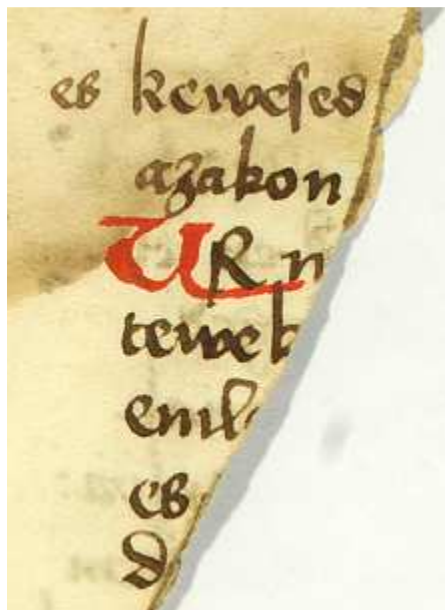 es keweſes
azakon
UR n
teweb
eml
es